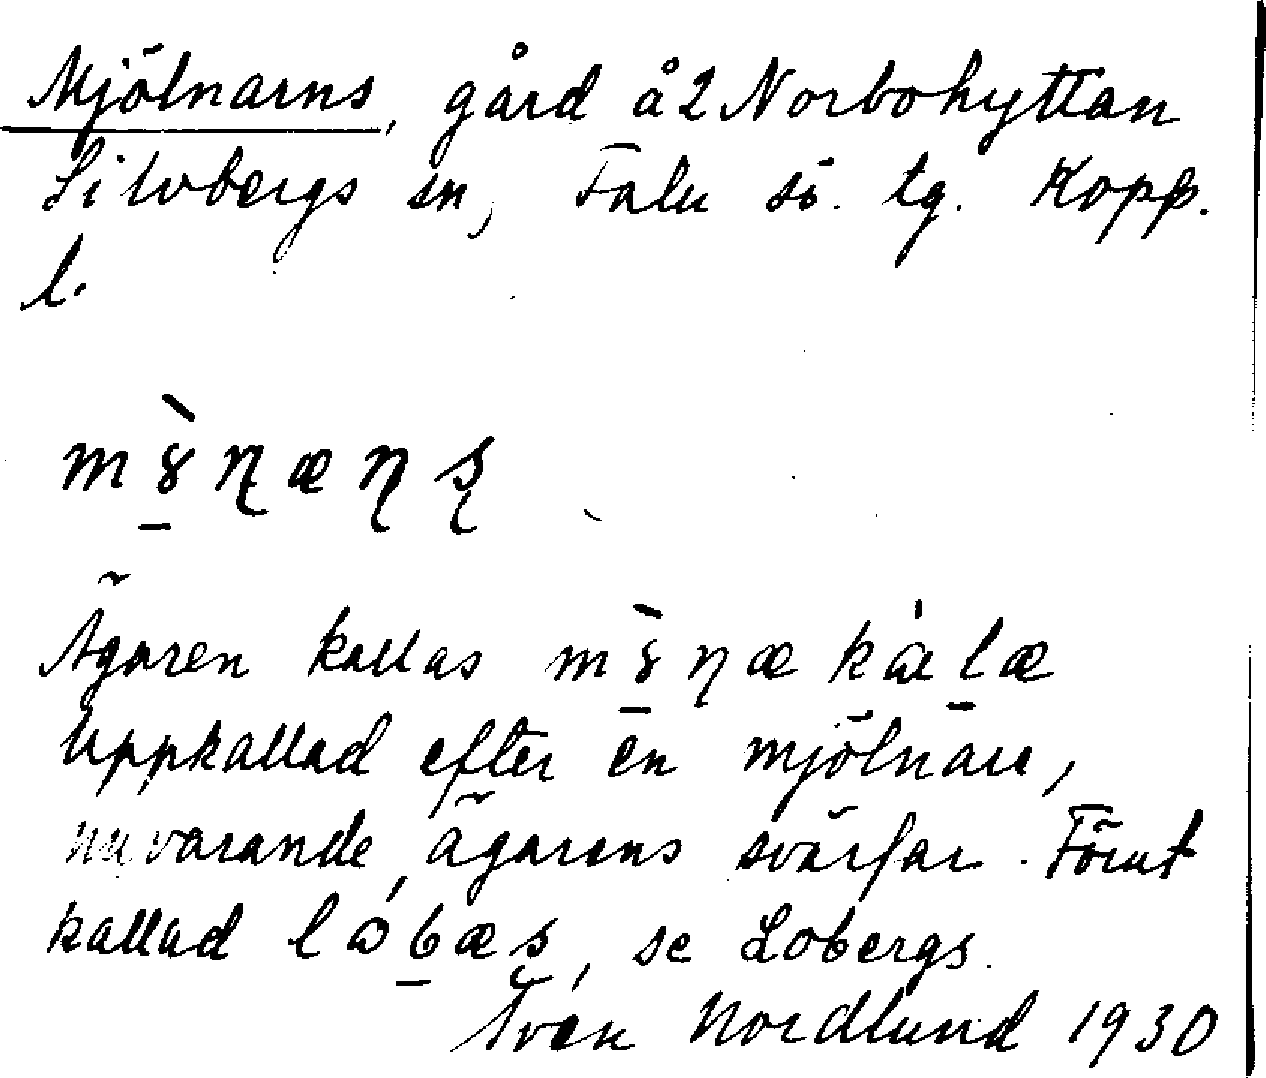 Mjölnarns, gård å 2 Norbohyttan
Silvbergs sn, Falu sö. tg. Kopp.
l.
mɤ̠̀ɳæɳʂ
Ägaren kallas mɤ̠̀ɳæ kàl̠æ
Uppkallad efter en mjölnare,
nuvarande ägarens svärfar. Förut
kallad lɔ́b̠æs, se Lobergs.
Sven Nordlund 1930